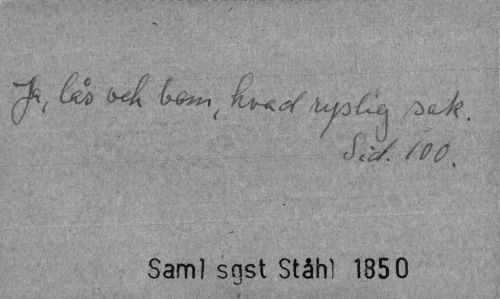 Ja, lås och bom, hvad ryslig sak.
Sid. 100.
Saml sgst Ståhl 1850